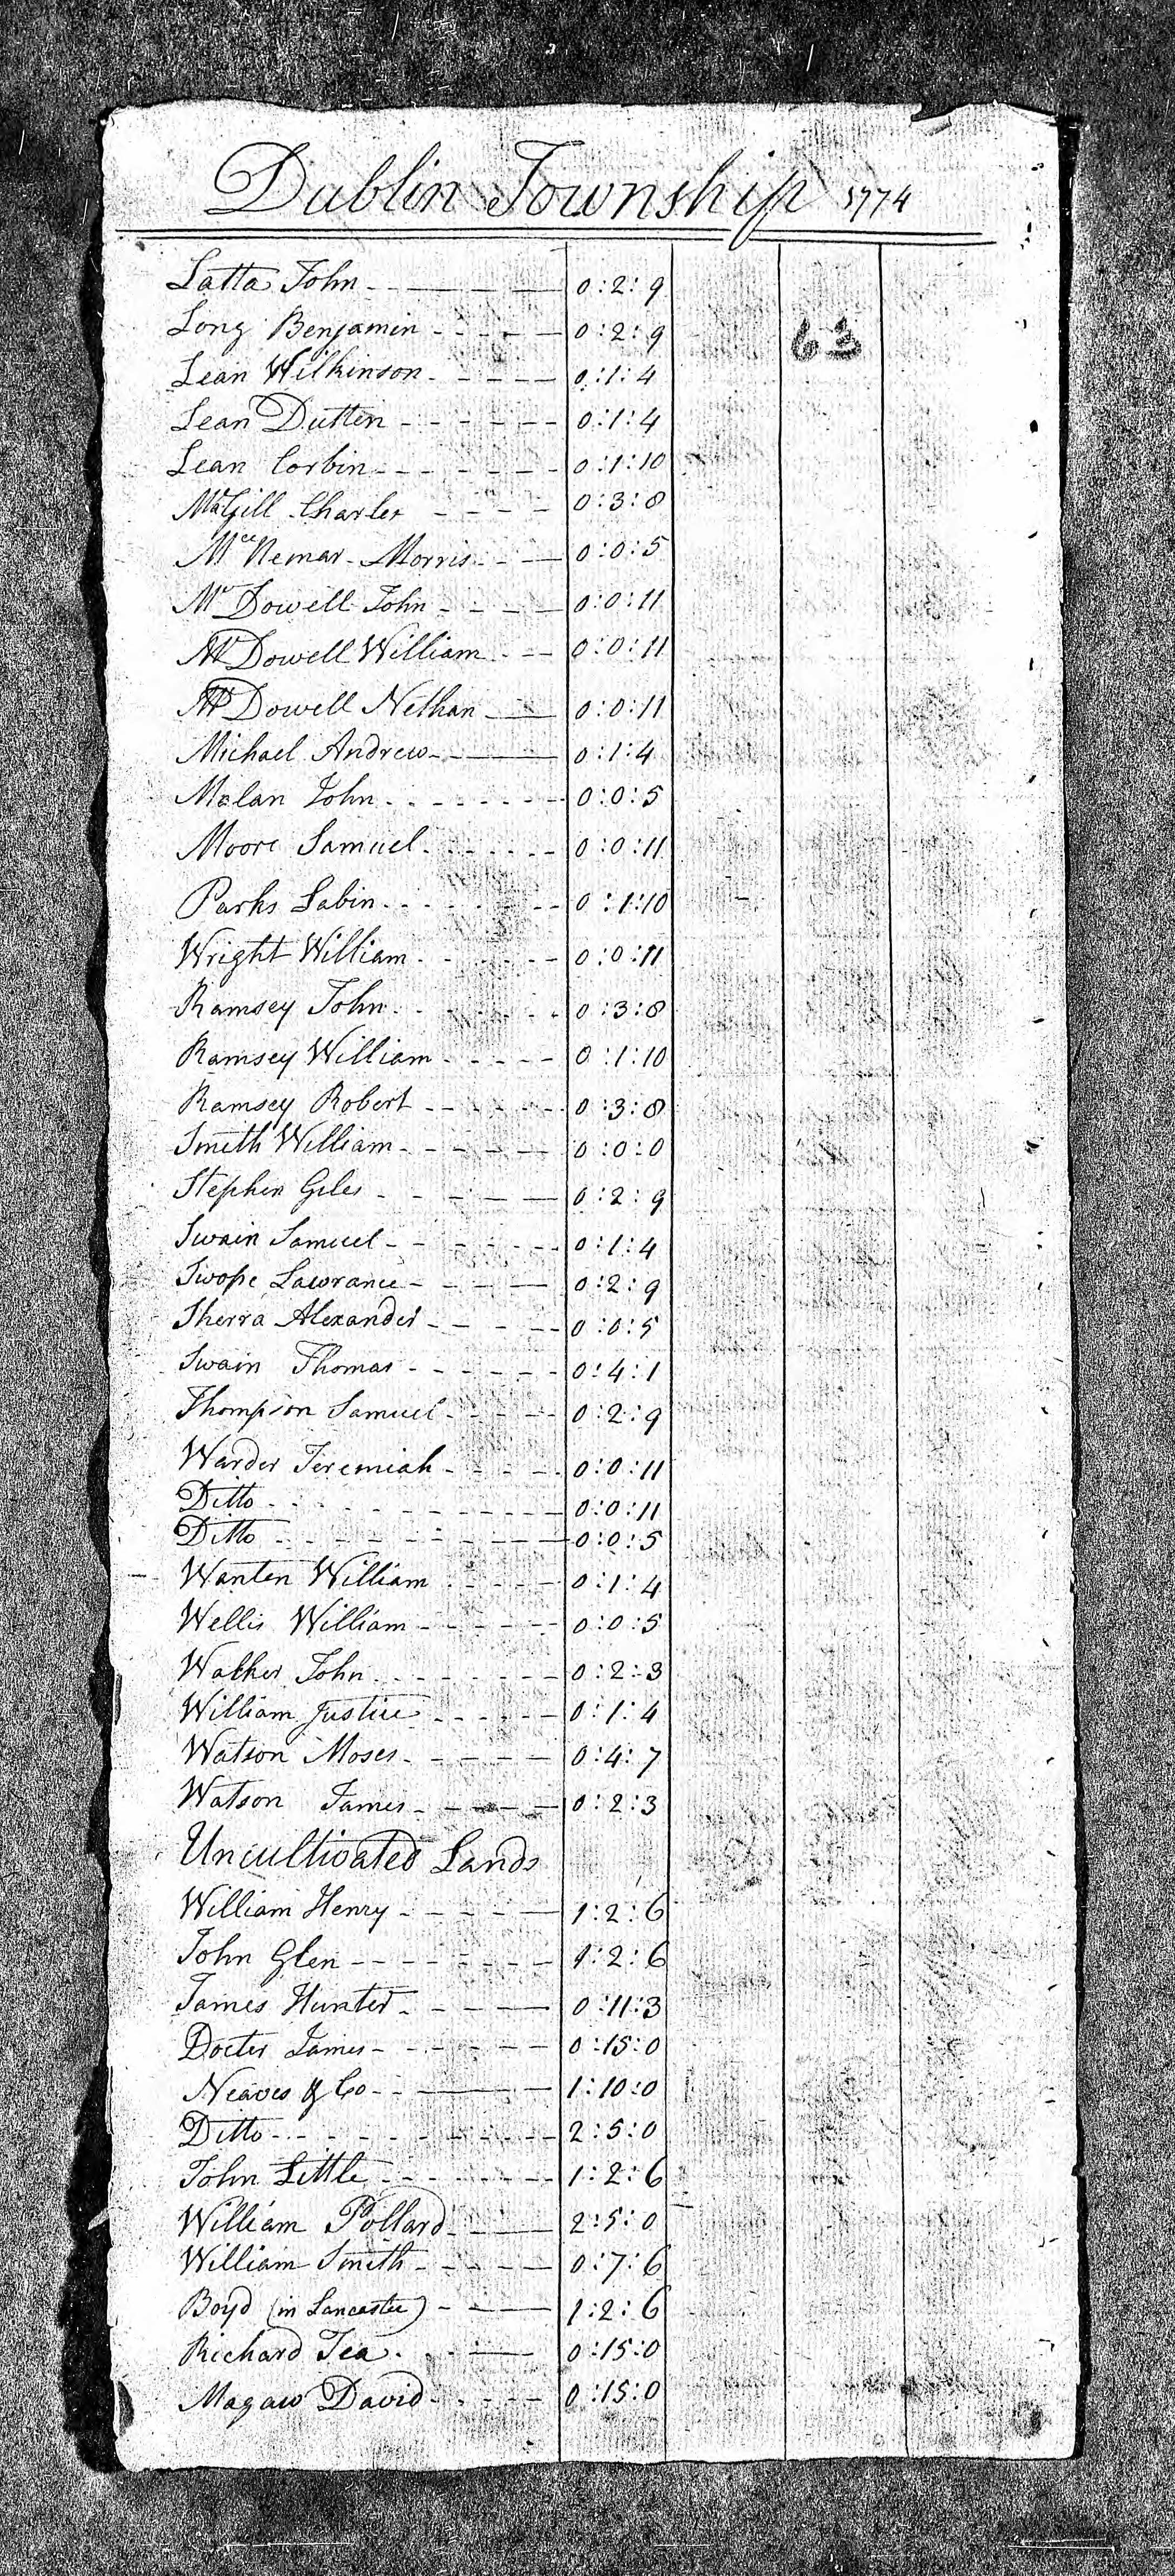 Dublin Township 1774
Latta John 0:2:9
Long Benjamin 0:2:9
63
Lean Wilkinson 0:1:4
Lean Dutten 0:1:4
Lean Corbin 0:1:10
McGill Charles 0:3:8
McNemar Morris 0:0:5
McDowell John 0:0:11
McDowell William 0:0:11
McDowell Nethan 0:0:11
Michael Andrew 0:1:4
Melan John 0:0:5
Moore Samuel 0:0:11
Parks Labin 0:1:10
Wright William 0:0:11
Ramsey John 0:3:8
Ramsey William 0:1:10
Ramsey Robert 0:3:8
Smith William 0:0:0
Stephen Giles 0:2:9
Swain Samuel 0:1:4
Swope Lawrance 0:2:9
Sherra Alexander 0:0:5
Swain Thomas 0:4:1
Thompson Samuel 0:2:9
Warder Jeremiah 0:0:11
Ditto 0:0:11
Ditto 0:0:5
Wanten William 0:1:4
Wellis William 0:0:5
Walker John 0:2:3
William Justice 0:1:4
Watson Moses 0:4:7
Watson James 0:2:3
Uncultivated Lands
William Henry 1:2:6
John Glen 1:2:6
James Hunter 0:11:3
Docter James 0:15:0
Neaves & Co 1:10:0
Ditto 2:5:0
John Little 1:2:6
William Pollard 2:5:0
William Smith 0:7:6
Boyd (in Lancaster) 1:2:6
Richard Tea 0:15:0
Magaw David 0:15:0